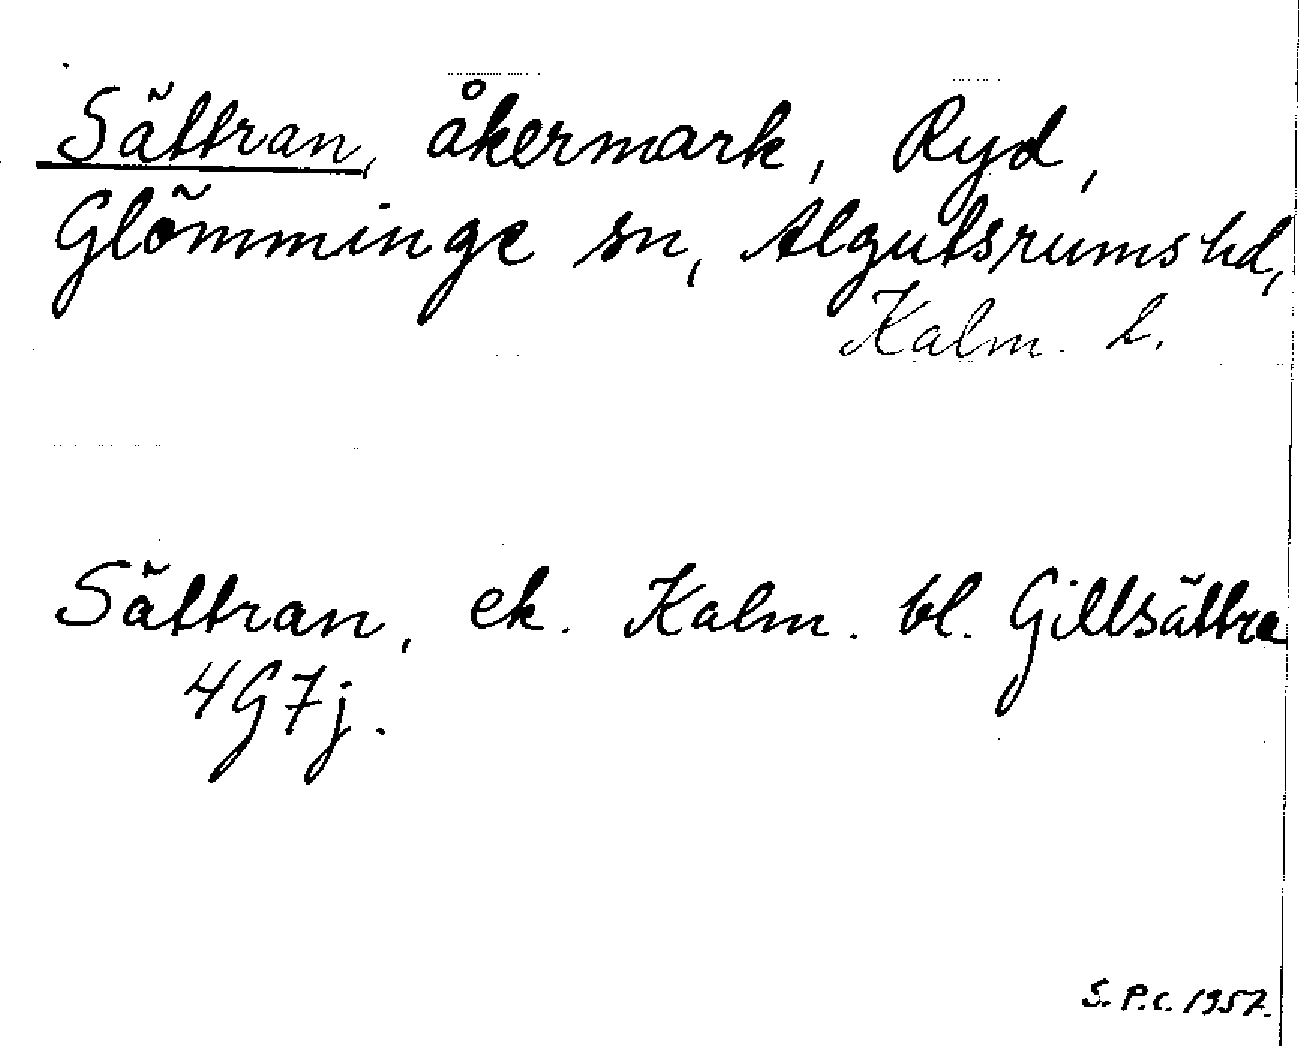 Sättran, åkermark, Ryd,
Glömminge sn, Algutsrums hd,
Kalm. L.
Sättran, ek. Kalm. bl. Gillsättra
4G7j.
S.P.C. 1957.